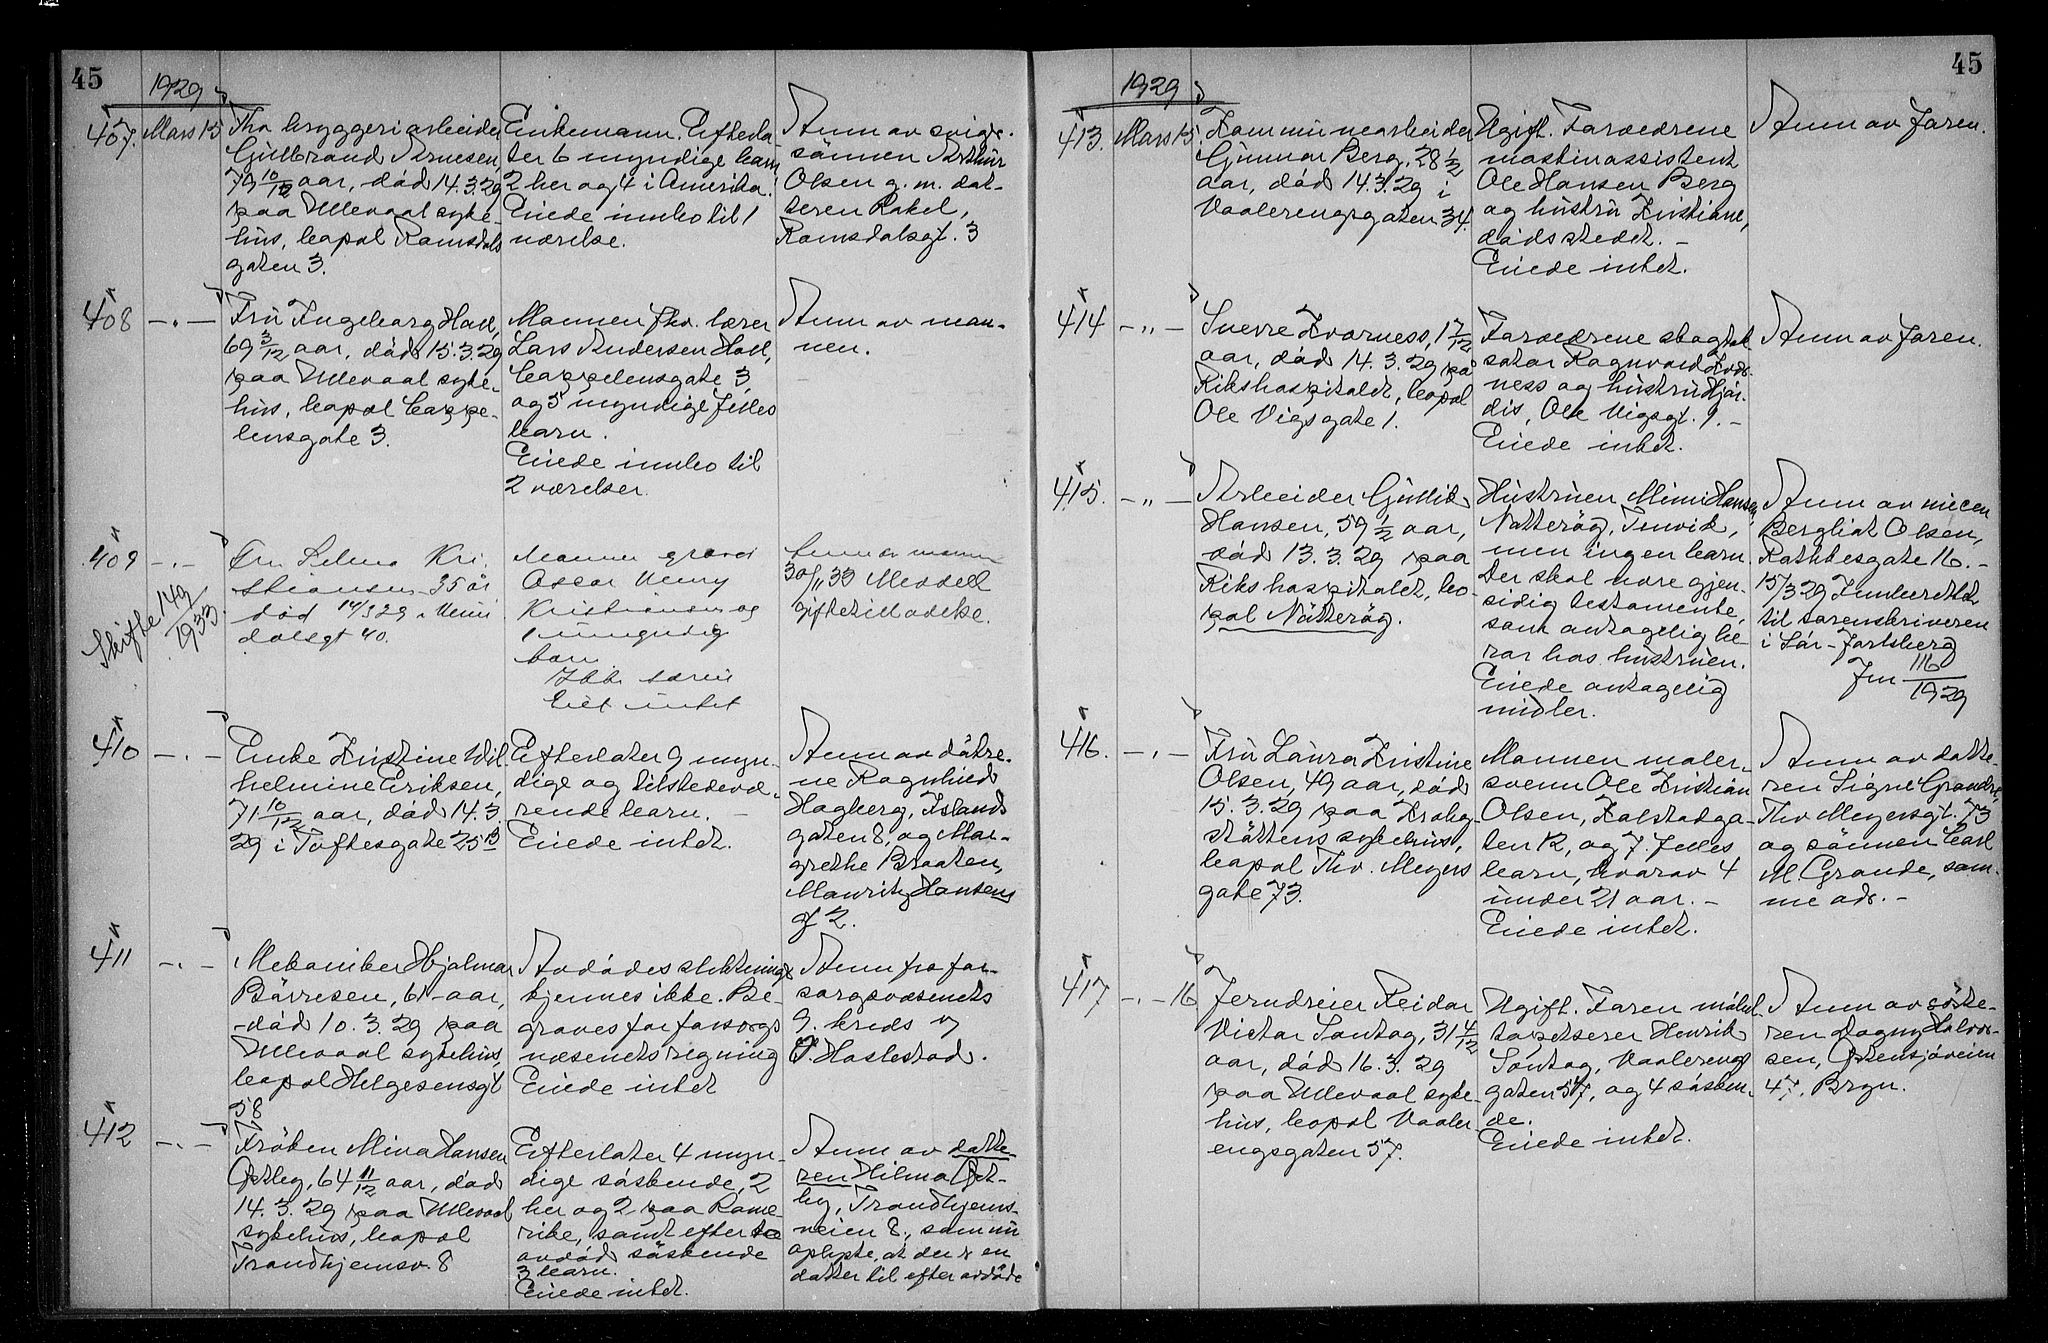 45
1929
407. Mars 15
Fhv bryggeriarbeider
Gulbrand Arnesen,
79 10/12 aar, död 14.3.29
paa Ullevaal syke-
hus, bopæl Romsdals
gaten 3.
Enkemann. Efterla-
ter 6 myndige barn
2 her og 4 i Amerika.
Eiede innbo til 1
værelse.
Anm av sviger-
sönnen Arthur
Olsen g. m. dat-
teren Rakel,
Romsdalsgt. 3
408 — . —
Fru Ingeborg Hoel,
69 3/12 aar, död 15.3.29
paa Ullevaal syke-
hus, bopæl Cappe-
lensgate 3.
Mannen fhv. lærer
Lars Andersen Hoel,
Cappelensgate 3,
og 5 myndige felles
barn.
Eiede innbo til
2 værelser.
Anm av man-
nen.
409 — . —
Skifte 149/1933.
Fru Selma Kri-
stiansen 35 år
död 14/3 29
40.
Mannen
Oscar Henry
Kristiansen og
1 umyndig
barn
særeie
Eiet intet
Anm av mannen
30/11 33 Meddelt
giftetillatelse.
410 — . —
Enke Kristine Wil-
helmine Eriksen,
71 10/12 aar, död 14.3.
29 i Toftesgate 25 B
Efterlater 9 myn-
dige og tilstedevæ-
rende barn. —
Eiede intet.
Anm av dötre-
ne Ragnhild
Hagberg, Islands
gaten 8, og Mar-
grethe Braaten,
Mauritz Hansens
g 2.
411 — . —
Mekaniker Hjalmar
Börresen, 61 aar,
död 10.3.29 paa
Ullevaal sykehus,
bopæl Helgesensgt
58
Avdödes slektninger
kjennes ikke. Be-
graves for forsorgs
væsenets regning
Eiede intet
Anm fra for-
sorgsvæsenets
9. kreds v
Haslestad.
412 — . —
Fröken Mina Hansen
Östby, 64 11/12 aar, död
14.3.29 paa Ullevaal
sykehus, bopæl
Trondhjemsv. 8
Efterlater 4 myn-
dige söskende, 2
her og 2 paa Rome-
rike, samt efter
avdöd söskende
3 barn.
Eiede intet.
Anm av datte-
ren Hilma Öst-
by, Trondhjems-
veien 8, som nu
oplyste, at der er en
datter til efter avdöde
45
1929
413. Mars 15.
Kommunearbeider
Gunnar Berg, 28 1/2
aar, död 14.3.29 i
Vaalerengsgaten 34.
Ugift. Forældrene
maskinassistent
Ole Hansen Berg
og hustru Kristiane,
dödsstedet. —
Eiede intet.
Anm av faren.
414 — " —
Sverre Kvarness, 1 7/12
aar, död 14.3.29 på
Rikshospitalet, bopæl
Ole Vigsgate 1.
Forældrene skogtak-
sator Ragnvald Kvar-
ness og hustru Hjör-
dis, Ole Vigsgt. 1. —
Eiede intet.
Anm av faren.
415. — " —
Arbeider Gullik
Hansen, 59 1/2 aar,
död 13.3.29 paa
Rikshospitalet, bo-
pæl Nötteröy.
Hustruen Mimi Hansen,
Nötteröy, Tenvik,
men ingen barn.
Der skal være gjen-
sidig testamente,
som antagelig be-
ror hos hustruen.
Eiede antagelig
midler.
Anm av niecen
Bergliot Olsen,
Rathkesgate 16. —
15/3 29 Innberettet
til sorenskriveren
i Sör-Jarlsberg
Jm 116/1929
416. — . —
Fru Laura Kristine
Olsen, 49 aar, död
15.3.29 paa Krohg-
stöttens sykehus,
bopæl Thv. Meyers
gate 73.
Mannen maler-
svenn Ole Kristian
Olsen, Kalstadga-
ten 12, og 7 felles
barn, hvorav 4
under 21 aar. —
Eiede intet.
Anm av datte-
ren Signe Grande,
Thv Meyersgt. 73
og sönnen Carl
M. Grande, sam-
me adr. —
417 — . — 16
Jerndreier Reidar
Victor Sontag, 31 4/12
aar, död 16.3.29
paa Ullevaal syke-
hus, bopæl Vaaler-
engsgaten 57.
Ugift. Faren möbel-
tapetserer Henrik
Sontag, Vaalerengs
gaten 57, og 4 sösken-
de.
Eiede intet.
Anm av söste-
ren Dagny Halvor-
sen, Östensjöveien
47, Bryn.